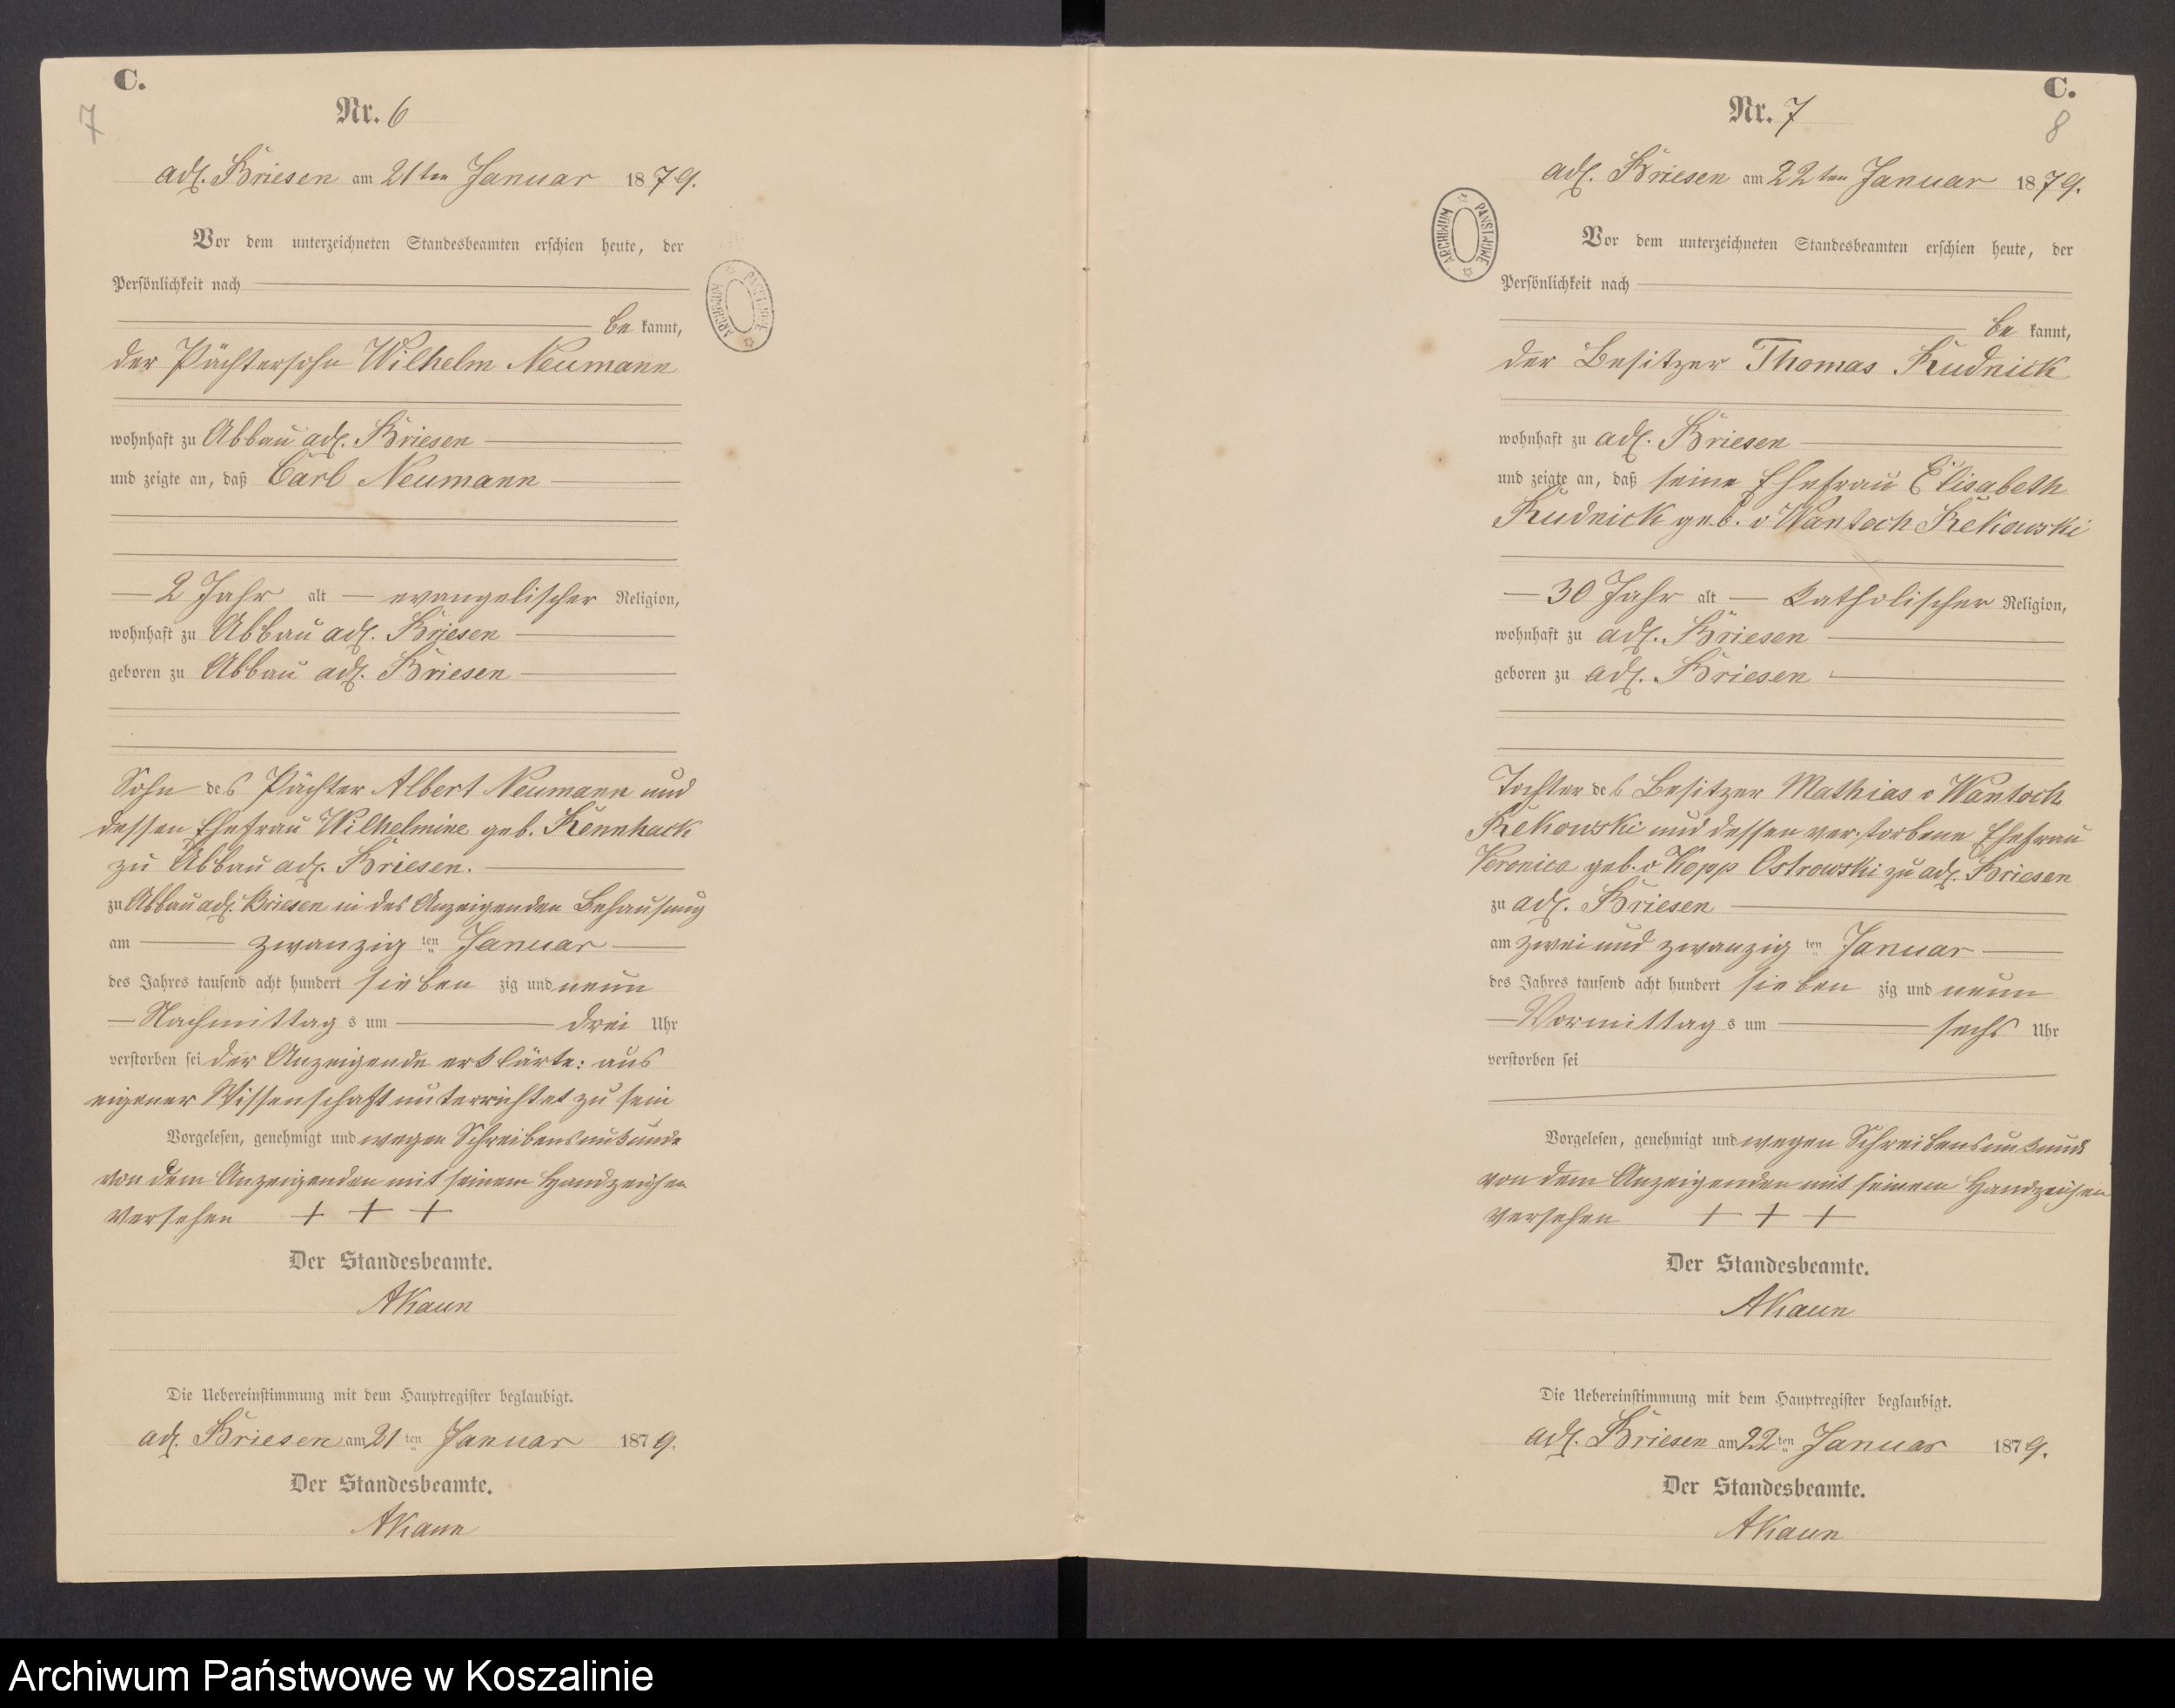 C.
7
Nr. 6
adl. Briesen am 21ten Januar 1879.
Vor dem unterzeichneten Standesbeamten erschien heute, der
Persönlichkeit nach
be kannt,
der Pächtersohn Wilhelm Neumann
wohnhaft zu Abbau adl. Briesen
und zeigte an, daß Carl Neumann
2 Jahr alt evangelischer Religion,
wohnhaft zu Abbau adl. Briesen
geboren zu Abbau adl. Briesen
Sohn des Pächter Albert Neumann und
dessen Ehefrau Wilhelmine geb. Kennhack
zu Abbau adl. Briesen.
zu Abbau adl. Briesen in des Anzeigenden Behausung
am zwanzig ten Januar
des Jahres tausend acht hundert sieben zig und neun
Nachmittag s um drei Uhr
verstorben sei der Anzeigende erklärte: aus
eigener Wissenschaft unterrichtet zu sein
Vorgelesen, genehmigt und wegen Schreibensunkunde
von dem Anzeigenden mit seinem Handzeichen
versehen + + +
Der Standesbeamte.
AKaun
Die Uebereinstimmung mit dem Hauptregister beglaubigt.
adl. Briesen am 21 ten Januar 1879.
Der Standesbeamte.
AKaun
ARCHIWUM PAŃSTWOWE
C.
8
Nr. 7
adl. Briesen am 22ten Januar 1879.
Vor dem unterzeichneten Standesbeamten erschien heute, der
Persönlichkeit nach
be kannt,
der Besitzer Thomas Rudnick
wohnhaft zu adl. Briesen
und zeigte an, daß seine Ehefrau Elisabeth
Rudnick geb. v Wantoch Rekowski
30 Jahr alt katholischer Religion,
wohnhaft zu adl. Briesen
geboren zu adl. Briesen
Tochter des Besitzer Mathias v Wantoch
Rekowski und dessen verstorbene Ehefrau
Veronica geb. v Kopp Ostrowski zu adl. Briesen
zu adl. Briesen
am zwei und zwanzig ten Januar
des Jahres tausend acht hundert sieben zig und neun
Vormittag s um sechs Uhr
verstorben sei
Vorgelesen, genehmigt und wegen Schreibensunkund
von dem Anzeigenden mit seinem Handzeichen
versehen + + +
Der Standesbeamte.
AKaun
Die Uebereinstimmung mit dem Hauptregister beglaubigt.
adl. Briesen am 22 ten Januar 1879.
Der Standesbeamte.
AKaun
ARCHIWUM PAŃSTWOWE
Archiwum Państwowe w Koszalinie